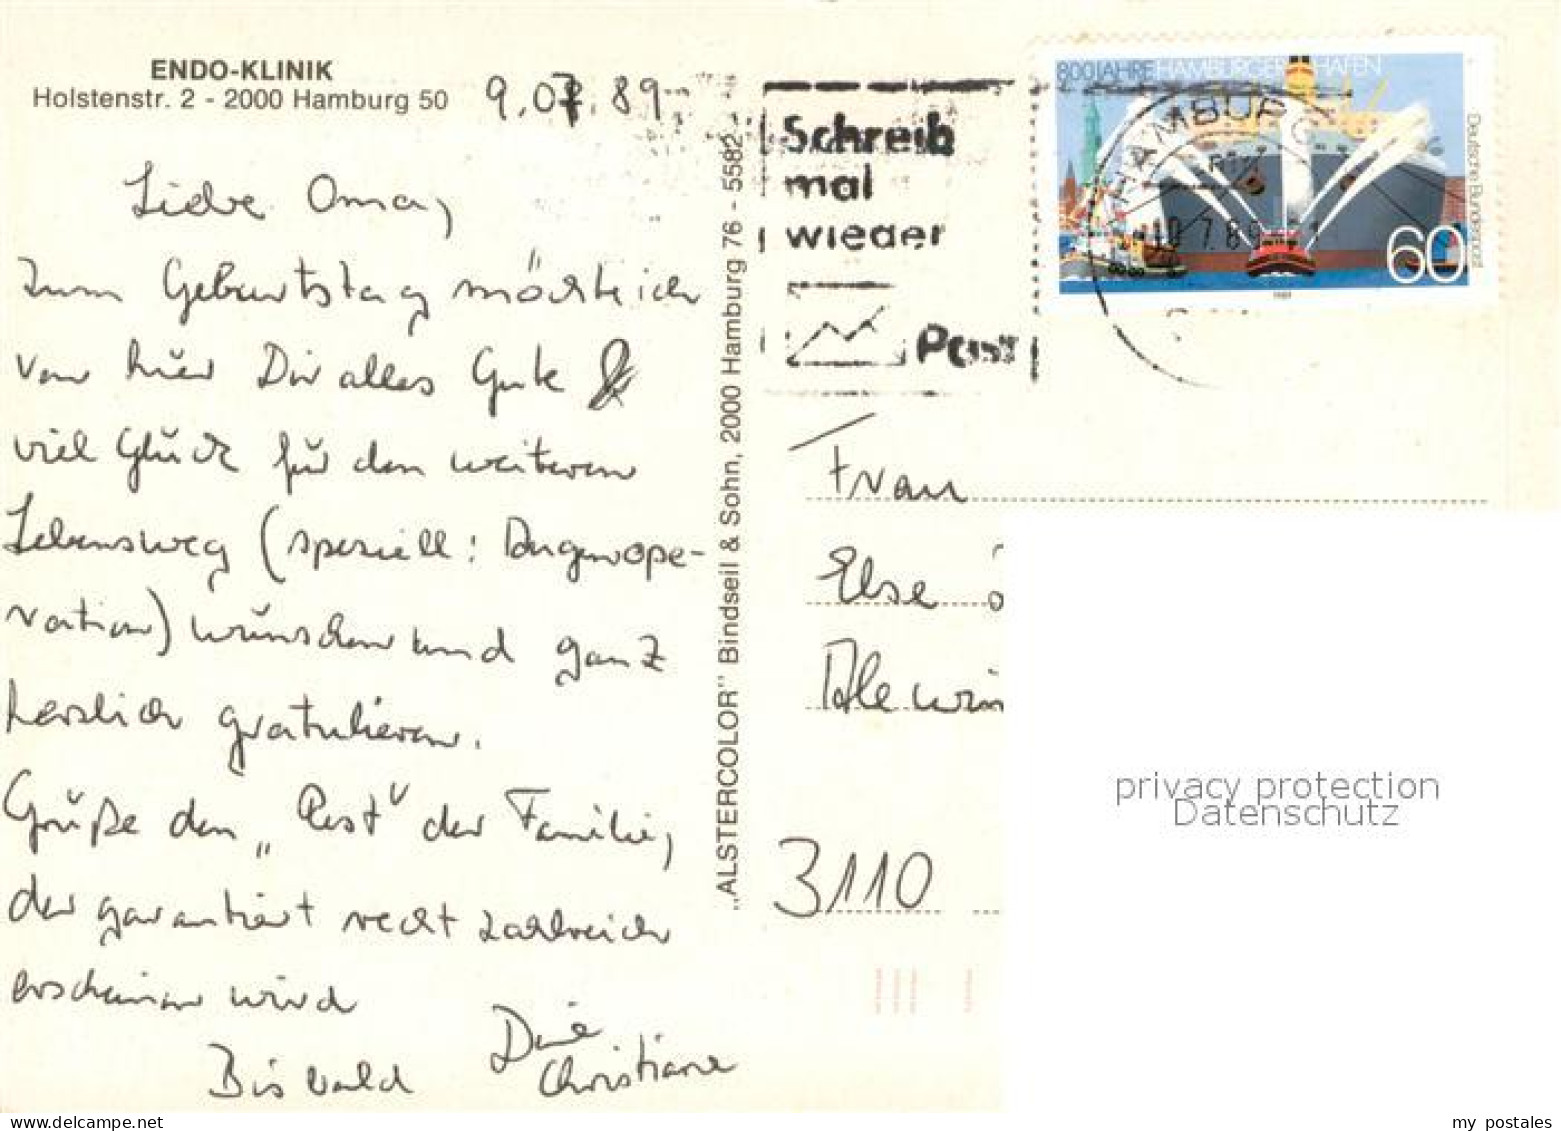 ENDO-KLINIK
Holstenstr. 2 - 2000 Hamburg 50
9.07.89
Liebe Oma,
zum Geburtstag möchte ich
von hier Dir alles Gute &
viel Glück für den weiteren
Lebensweg (speziell: Augenope-
ration) wünschen und ganz
herzlich gratulieren.
Grüße den „Rest" der Familie,
der garantiert recht zahlreich
erscheinen wird
Bis bald
Deine
Christiane
„ALSTERCOLOR" Bindseil & Sohn, 2000 Hamburg 76 - 5582
Schreib
mal
wieder
Post
HAMBURG
10.7.89
800 JAHRE HAMBURGER HAFEN
Deutsche Bundespost
60
1989
Frau
Else
3110
privacy protection
Datenschutz
my postales